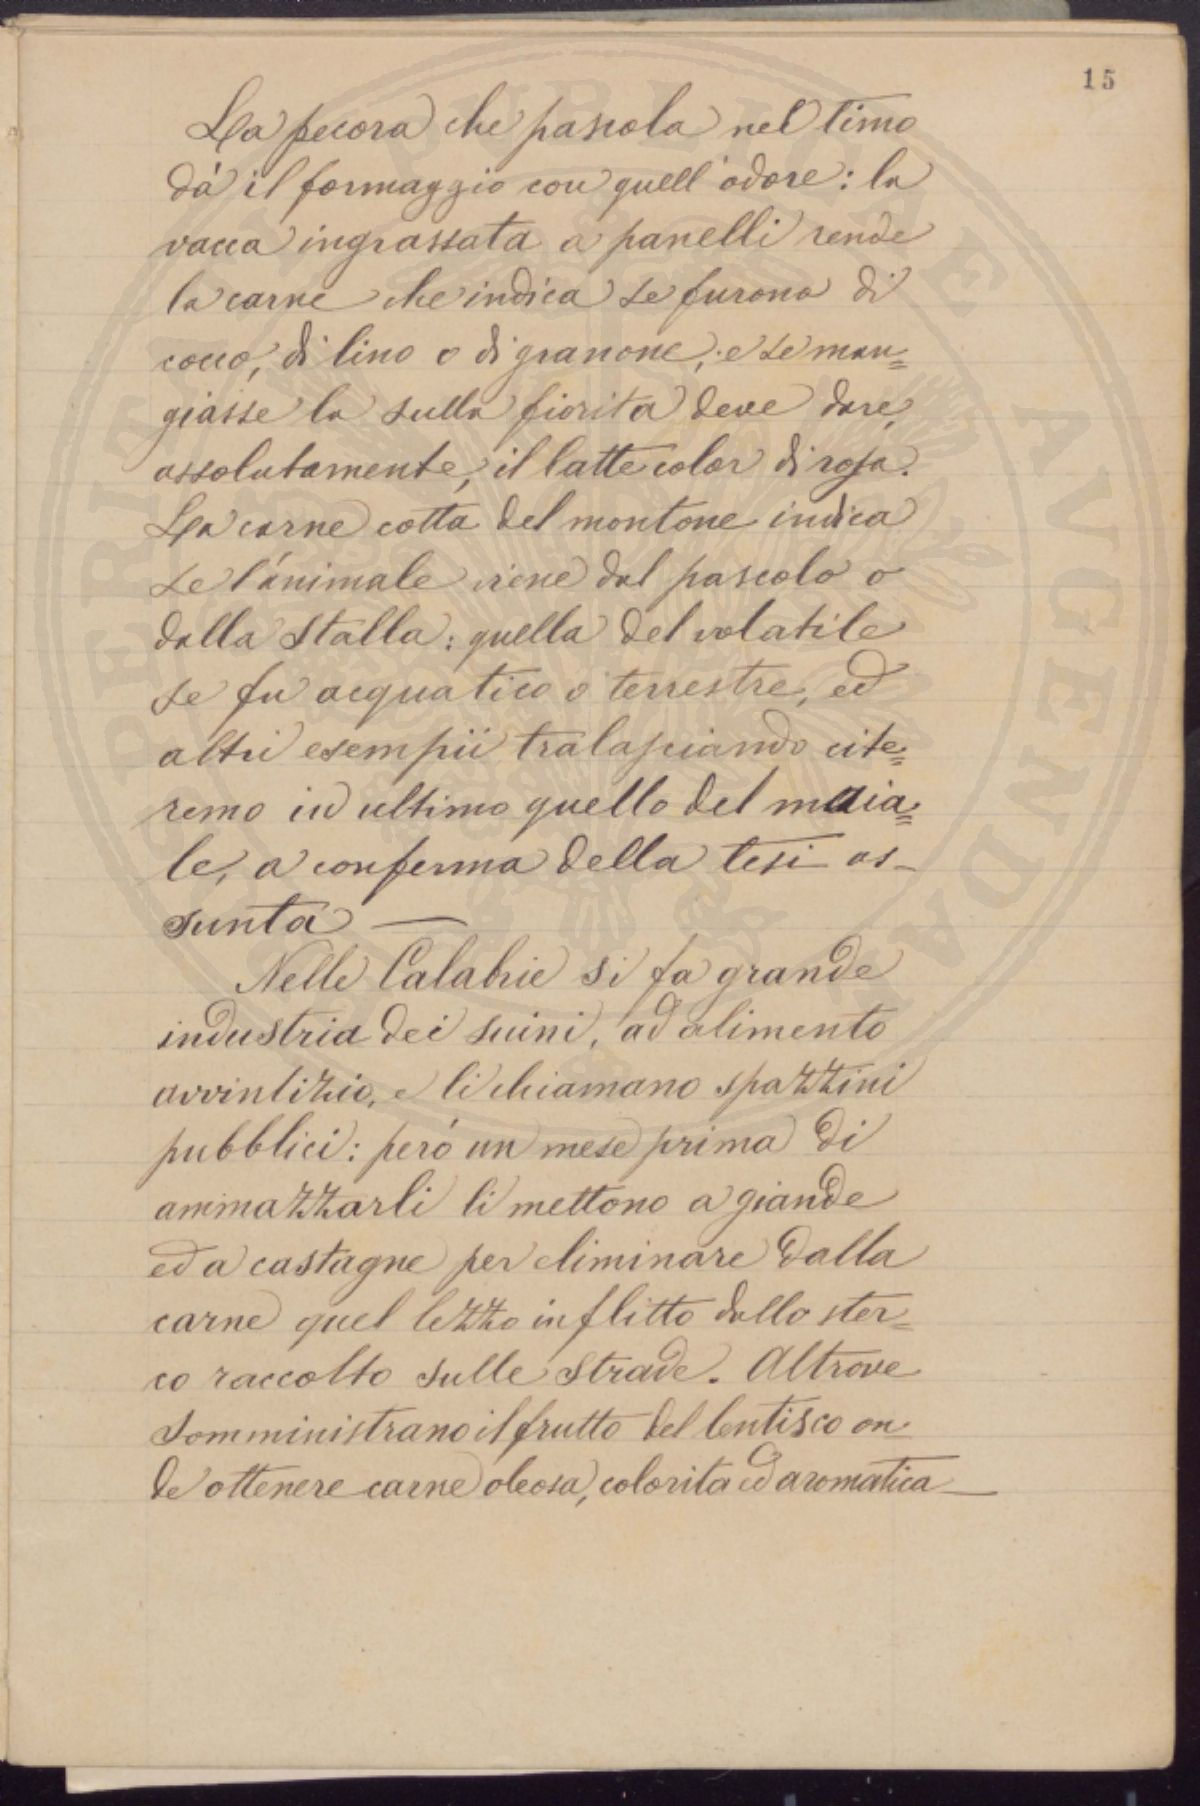 15
La pecora che pascola nel timo
dà il formaggio con quell'odore: la
vacca ingrassata a panelli rende
la carne che indica se furono di
cocco, di lino o di granone; e se man=
giasse la sulla fiorita deve dare,
assolutamente, il latte color di rosa.
La carne cotta del montone indica
se l'animale viene dal pascolo o
dalla stalla: quella del volatile
se fu acquatico o terrestre, ed
altri esempii tralasciando cite=
remo in ultimo quello del maia=
le, a conferma della tesi as-
sunta —
Nelle Calabrie si fa grande
industria dei suini, ad alimento
avvintizio, e li chiamano spazzini
pubblici: però un mese prima di
ammazzarli li mettono a giande
ed a castagne per eliminare dalla
carne quel lezzo inflitto dallo ster=
co raccolto sulle strade. Altrove
somministrano il frutto del lentisco on
de ottenere carne oleosa, colorita ed aromatica —
PERITI PUBLICAE AUGENDA